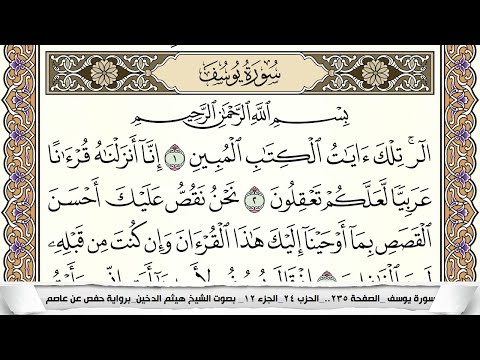 سُورَةُ يُوسُفَ
بِسْمِ اللَّهِ الرَّحْمَٰنِ الرَّحِيمِ
الٓرۚ تِلْكَ ءَايَٰتُ ٱلْكِتَٰبِ ٱلْمُبِينِ ١ إِنَّآ أَنزَلْنَٰهُ قُرْءَٰنًا
عَرَبِيًّا لَّعَلَّكُمْ تَعْقِلُونَ ٢ نَحْنُ نَقُصُّ عَلَيْكَ أَحْسَنَ
ٱلْقَصَصِ بِمَآ أَوْحَيْنَآ إِلَيْكَ هَٰذَا ٱلْقُرْءَانَ وَإِن كُنتَ مِن قَبْلِهِۦ
سورة يوسف _الصفحة ٢٣٥.._الحزب ٢٤ _الجزء ١٢_ بصوت الشيخ هيثم الدخين برواية حفص عن عاصم